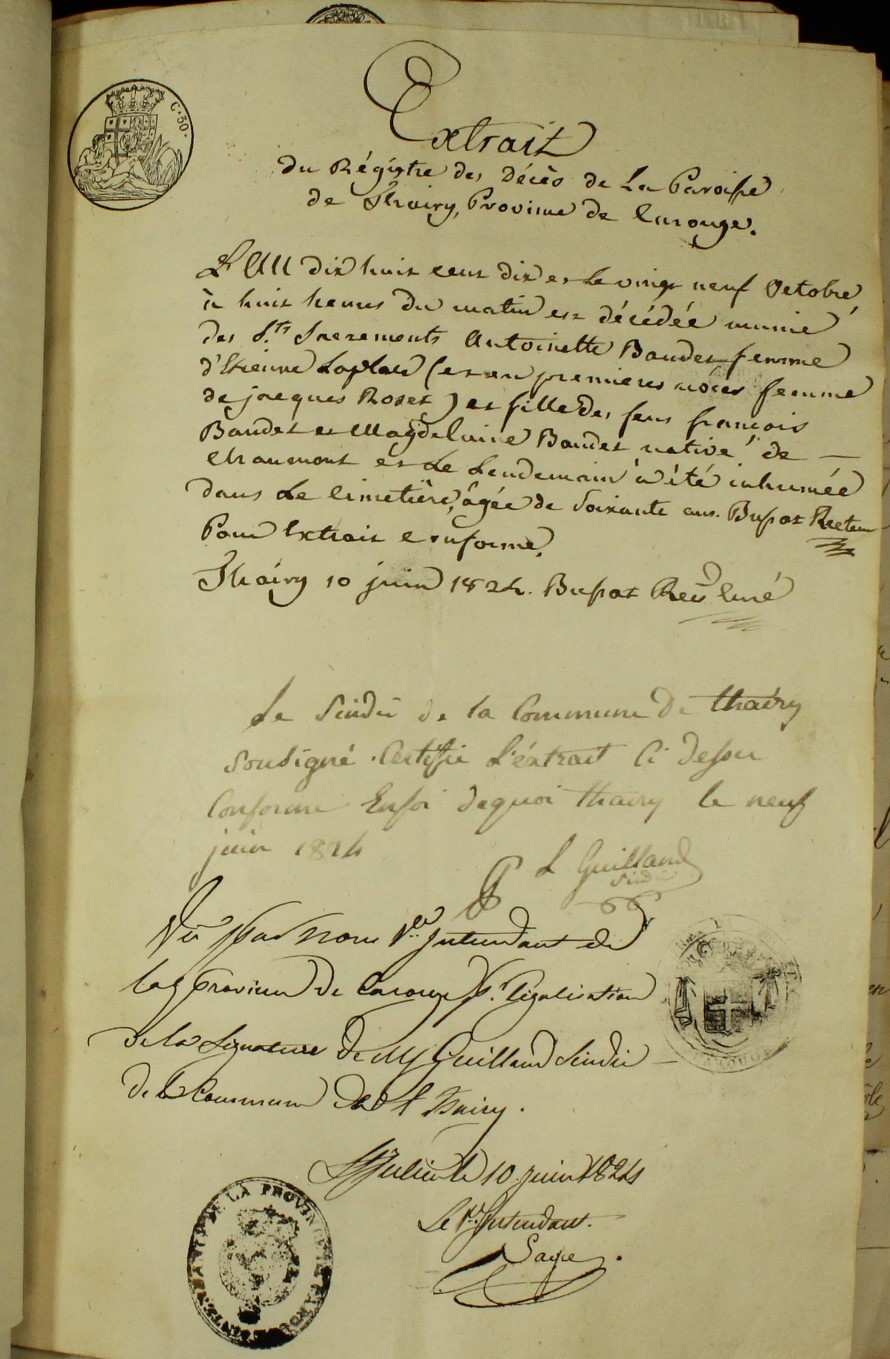 C. 30.
Extrait
du Régistre des Décès de La Paroisse
de Thairy, Province de Carouge.
L'An dix huit cent dix et Le vingt neuf Octobre
à huit heures du matin est décédée munie
des S.ts Sacrements Antoinette Baudet femme
d'Etienne Laplace (et en premières nôces femme
de jacques Roset) et fille des feus françois
Baudet et Magdelaine Baudet native de —
Chaumont et Le Lendemain a été inhumée
dans Le Cimetière, âgée de Soixante ans. Bussat Recteur
Pour Extrait conforme.
Thairy 10 juin 1824. Bussat Rec.r Curé
Le Sindic de la Commune de thairy
Sousigné Certifie L'éxtrait Ci dessu
Conforme Enfoi dequoi thairy le neuf
juin 1824
L Guilland
Sindic
Vu par nous V.e Intendant de
la Province de Carouge p.r légalisation
de la Signature de M Guilland Sindic
de la Commune de Thairy.
St Julien le 10 juin 1824
Le V.e Intendant.
INTENDANCE DE LA PROVINCE DE CAROUGE